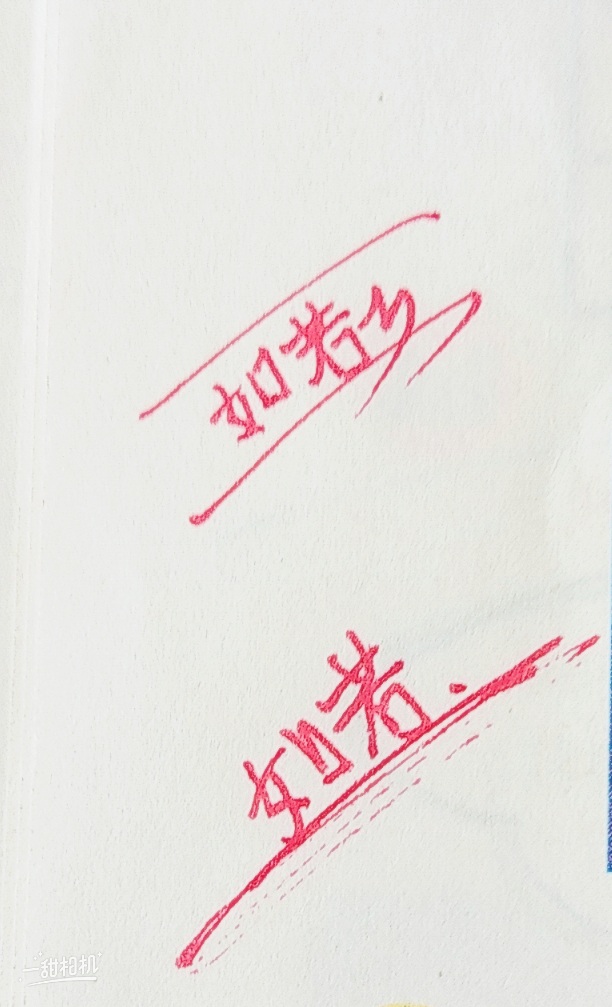 如若
如若.
一甜相机